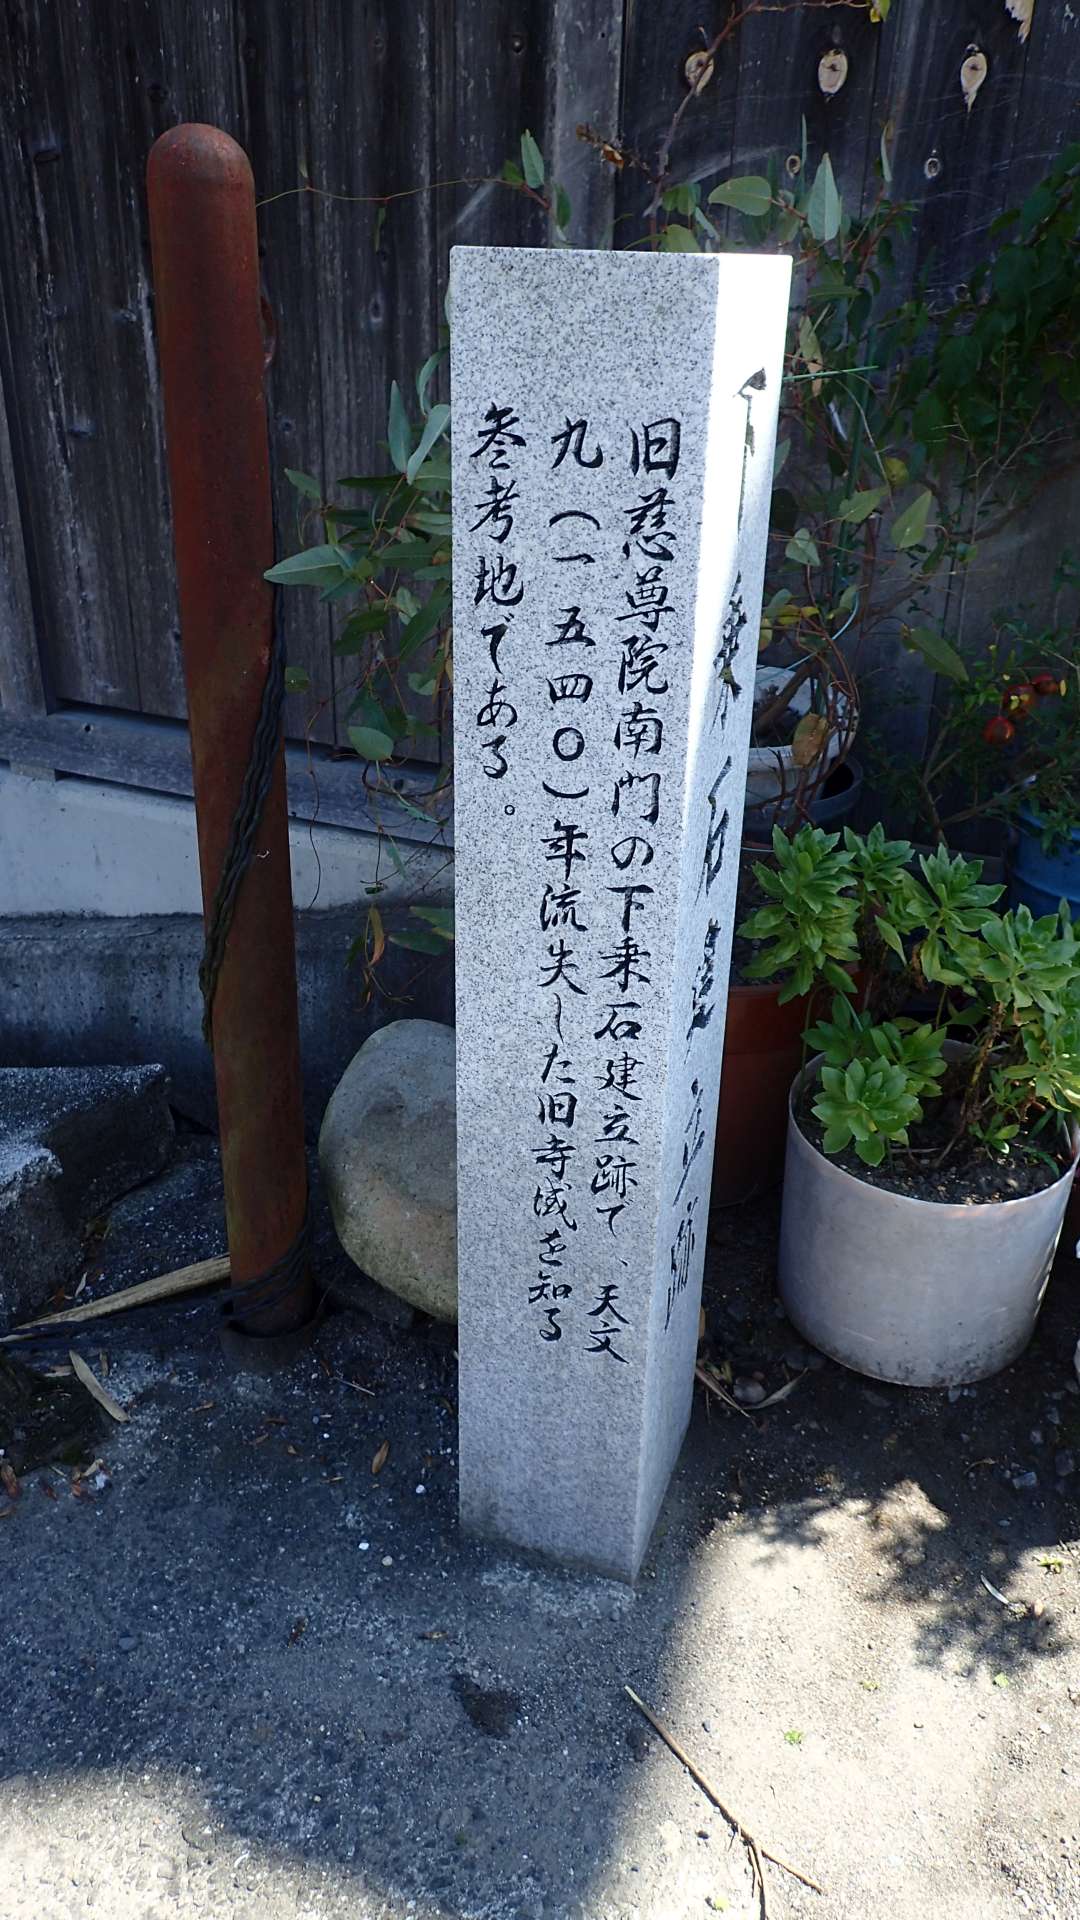 旧慈尊院南門の下乗石建立跡で、天文
九(一五四〇)年流失した旧寺域を知る
参考地である。
下乗石建立跡